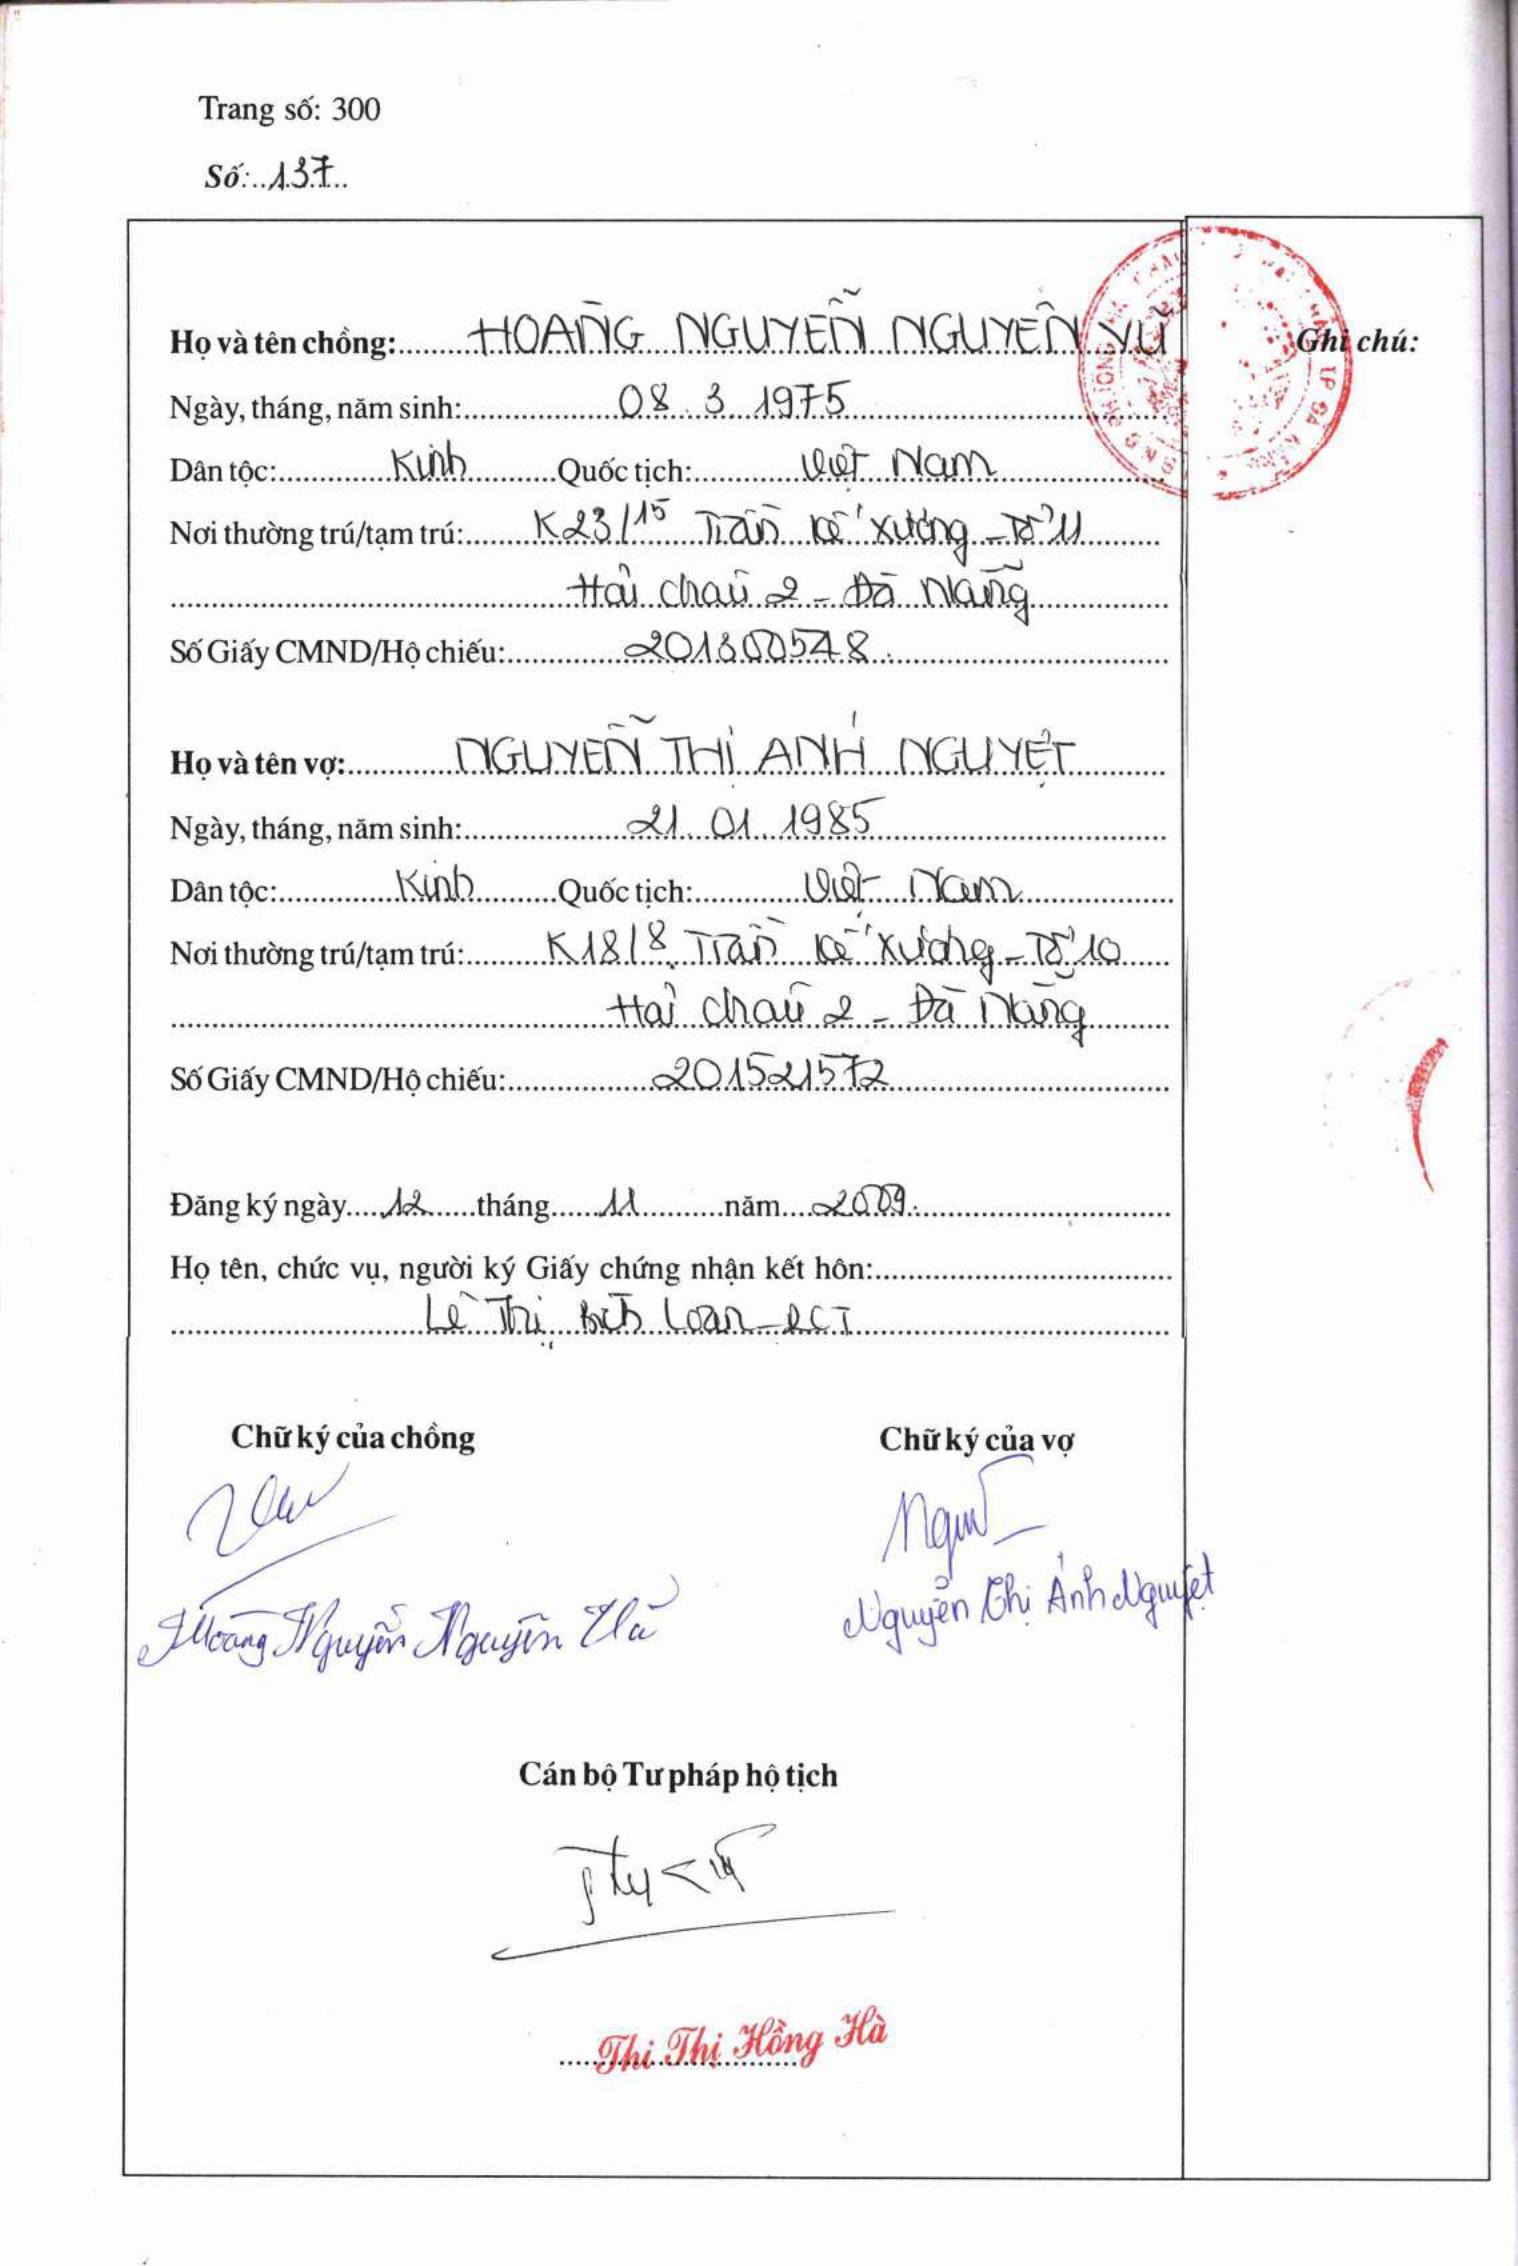 Trang số: 300
Số: 137
Họ và tên chồng: HOÀNG NGUYỄN NGUYÊN VŨ
Ghi chú:
Ngày, tháng, năm sinh: 08.3.1975
Dân tộc: Kinh Quốc tịch: Việt Nam
Nơi thường trú/tạm trú: K23/15 Trần Kế Xương - Tổ 11
Hải Châu 2 - Đà Nẵng
Số Giấy CMND/Hộ chiếu: 201300548
Họ và tên vợ: NGUYỄN THỊ ÁNH NGUYỆT
Ngày, tháng, năm sinh: 21.01.1985
Dân tộc: Kinh Quốc tịch: Việt Nam
Nơi thường trú/tạm trú: K18/8 Trần Kế Xương - Tổ 10
Hải Châu 2 - Đà Nẵng
Số Giấy CMND/Hộ chiếu: 201521572
Đăng ký ngày 12 tháng 11 năm 2009
Họ tên, chức vụ, người ký Giấy chứng nhận kết hôn:
Lê Thị Bích Loan - PCT
Chữ ký của chồng Chữ ký của vợ
Hoàng Nguyễn Nguyên Vũ
Nguyễn Thị Ánh Nguyệt
Cán bộ Tư pháp hộ tịch
Thi Thị Hồng Hà